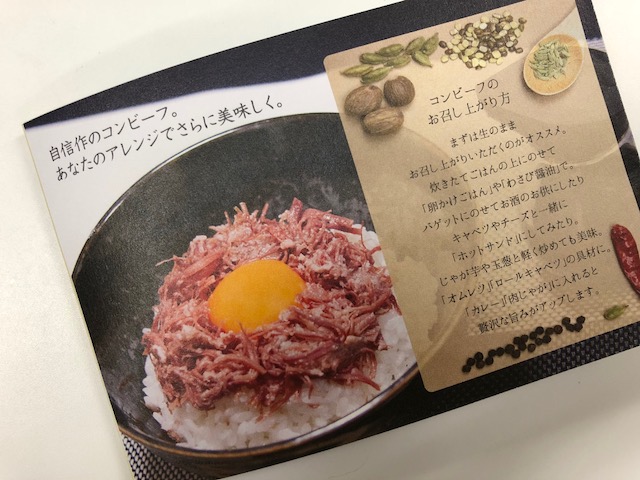 自信作のコンビーフ。
あなたのアレンジでさらに美味しく。
コンビーフの
お召し上がり方
まずは生のまま
お召し上がりいただくのがオススメ。
炊きたてごはんの上にのせて
「卵かけごはん」や「わさび醤油」で。
バゲットにのせてお酒のお供にしたり
キャベツやチーズと一緒に
「ホットサンド」にしてみたり。
じゃが芋や玉葱と軽く炒めても美味。
「オムレツ」「ロールキャベツ」の具材に。
「カレー」「肉じゃが」に入れると
贅沢な旨みがアップします。